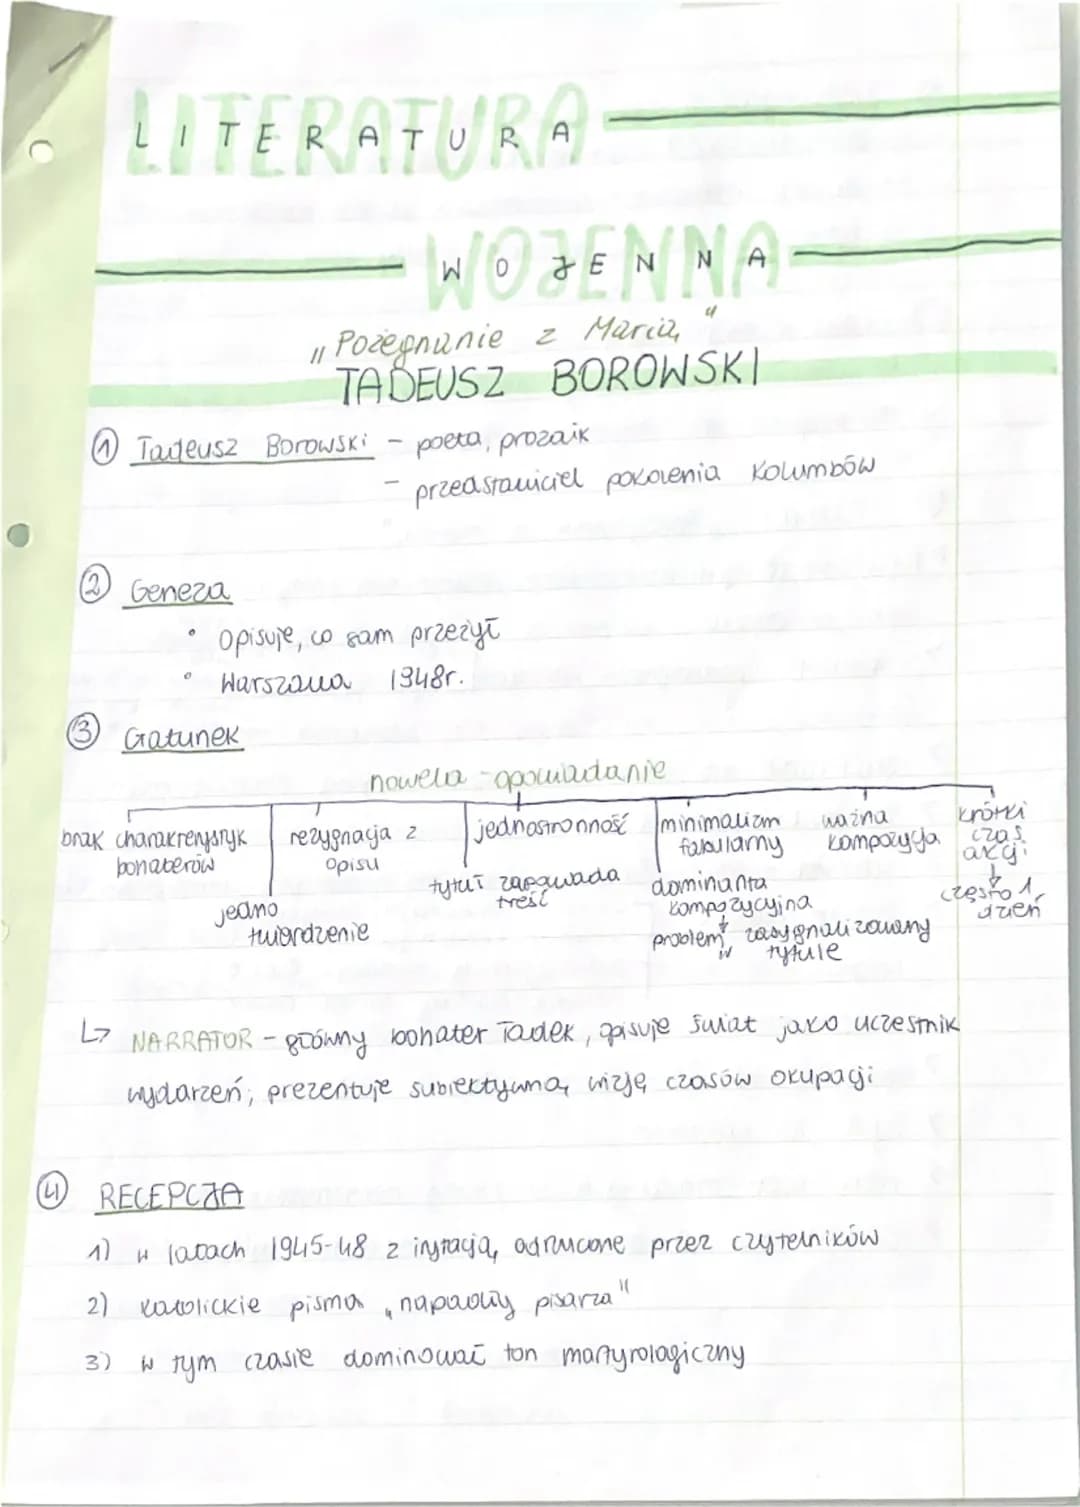 LITERATURA
WOJENNA
„Pożegnanie z Marią"
TADEUSZ BOROWSKI
① Tadeusz Borowski - poeta, prozaik
- przedstawiciel pokolenia Kolumbów
② Geneza
• Opisuje, co sam przeżył
• Warszawa 1948r.
③ Gatunek
nowela - opowiadanie
brak charakterystyk bohaterów
rezygnacja z opisu
jednostronność
minimalizm fabularny
ważna kompozycja
krótki czas akcji
↓
często 1 dzień
jedno twierdzenie
tytuł zapowiada treść
dominanta kompozycyjna
↓
problem zasygnalizowany w tytule
↳ NARRATOR - główny bohater Tadek, opisuje świat jako uczestnik
wydarzeń; prezentuje subiektywną wizję czasów okupacji
④ RECEPCJA
1) w latach 1945-48 z irytacją, odrzucone przez czytelników
2) katolickie pisma „napadały pisarza"
3) w tym czasie dominował ton martyrologiczny